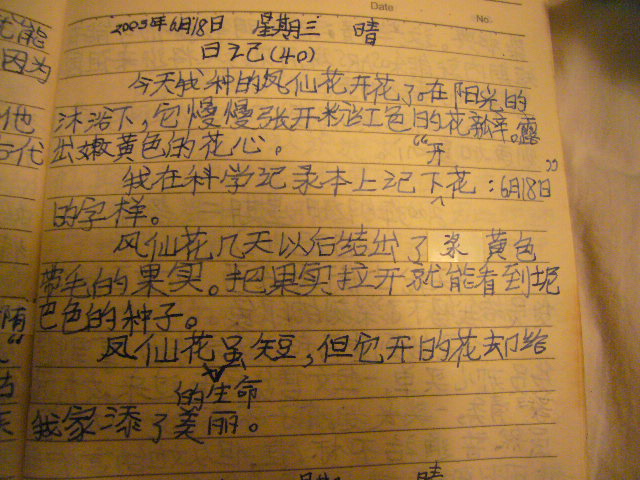 Date
No.
2003年6月18日 星期三 晴
日记(40)
今天我种的凤仙花开花了。在阳光的
沐浴下，它慢慢张开粉红色的花瓣。露
出嫩黄色的花心。
我在科学记录本上记下“开花：6月18日”
的字样。
凤仙花几天以后结出了 黄色
带毛的果实。把果实拉开就能看到
巴色的种子。
凤仙花的生命虽短，但它开的花却给
我家添了美丽。
能
因为
他
代